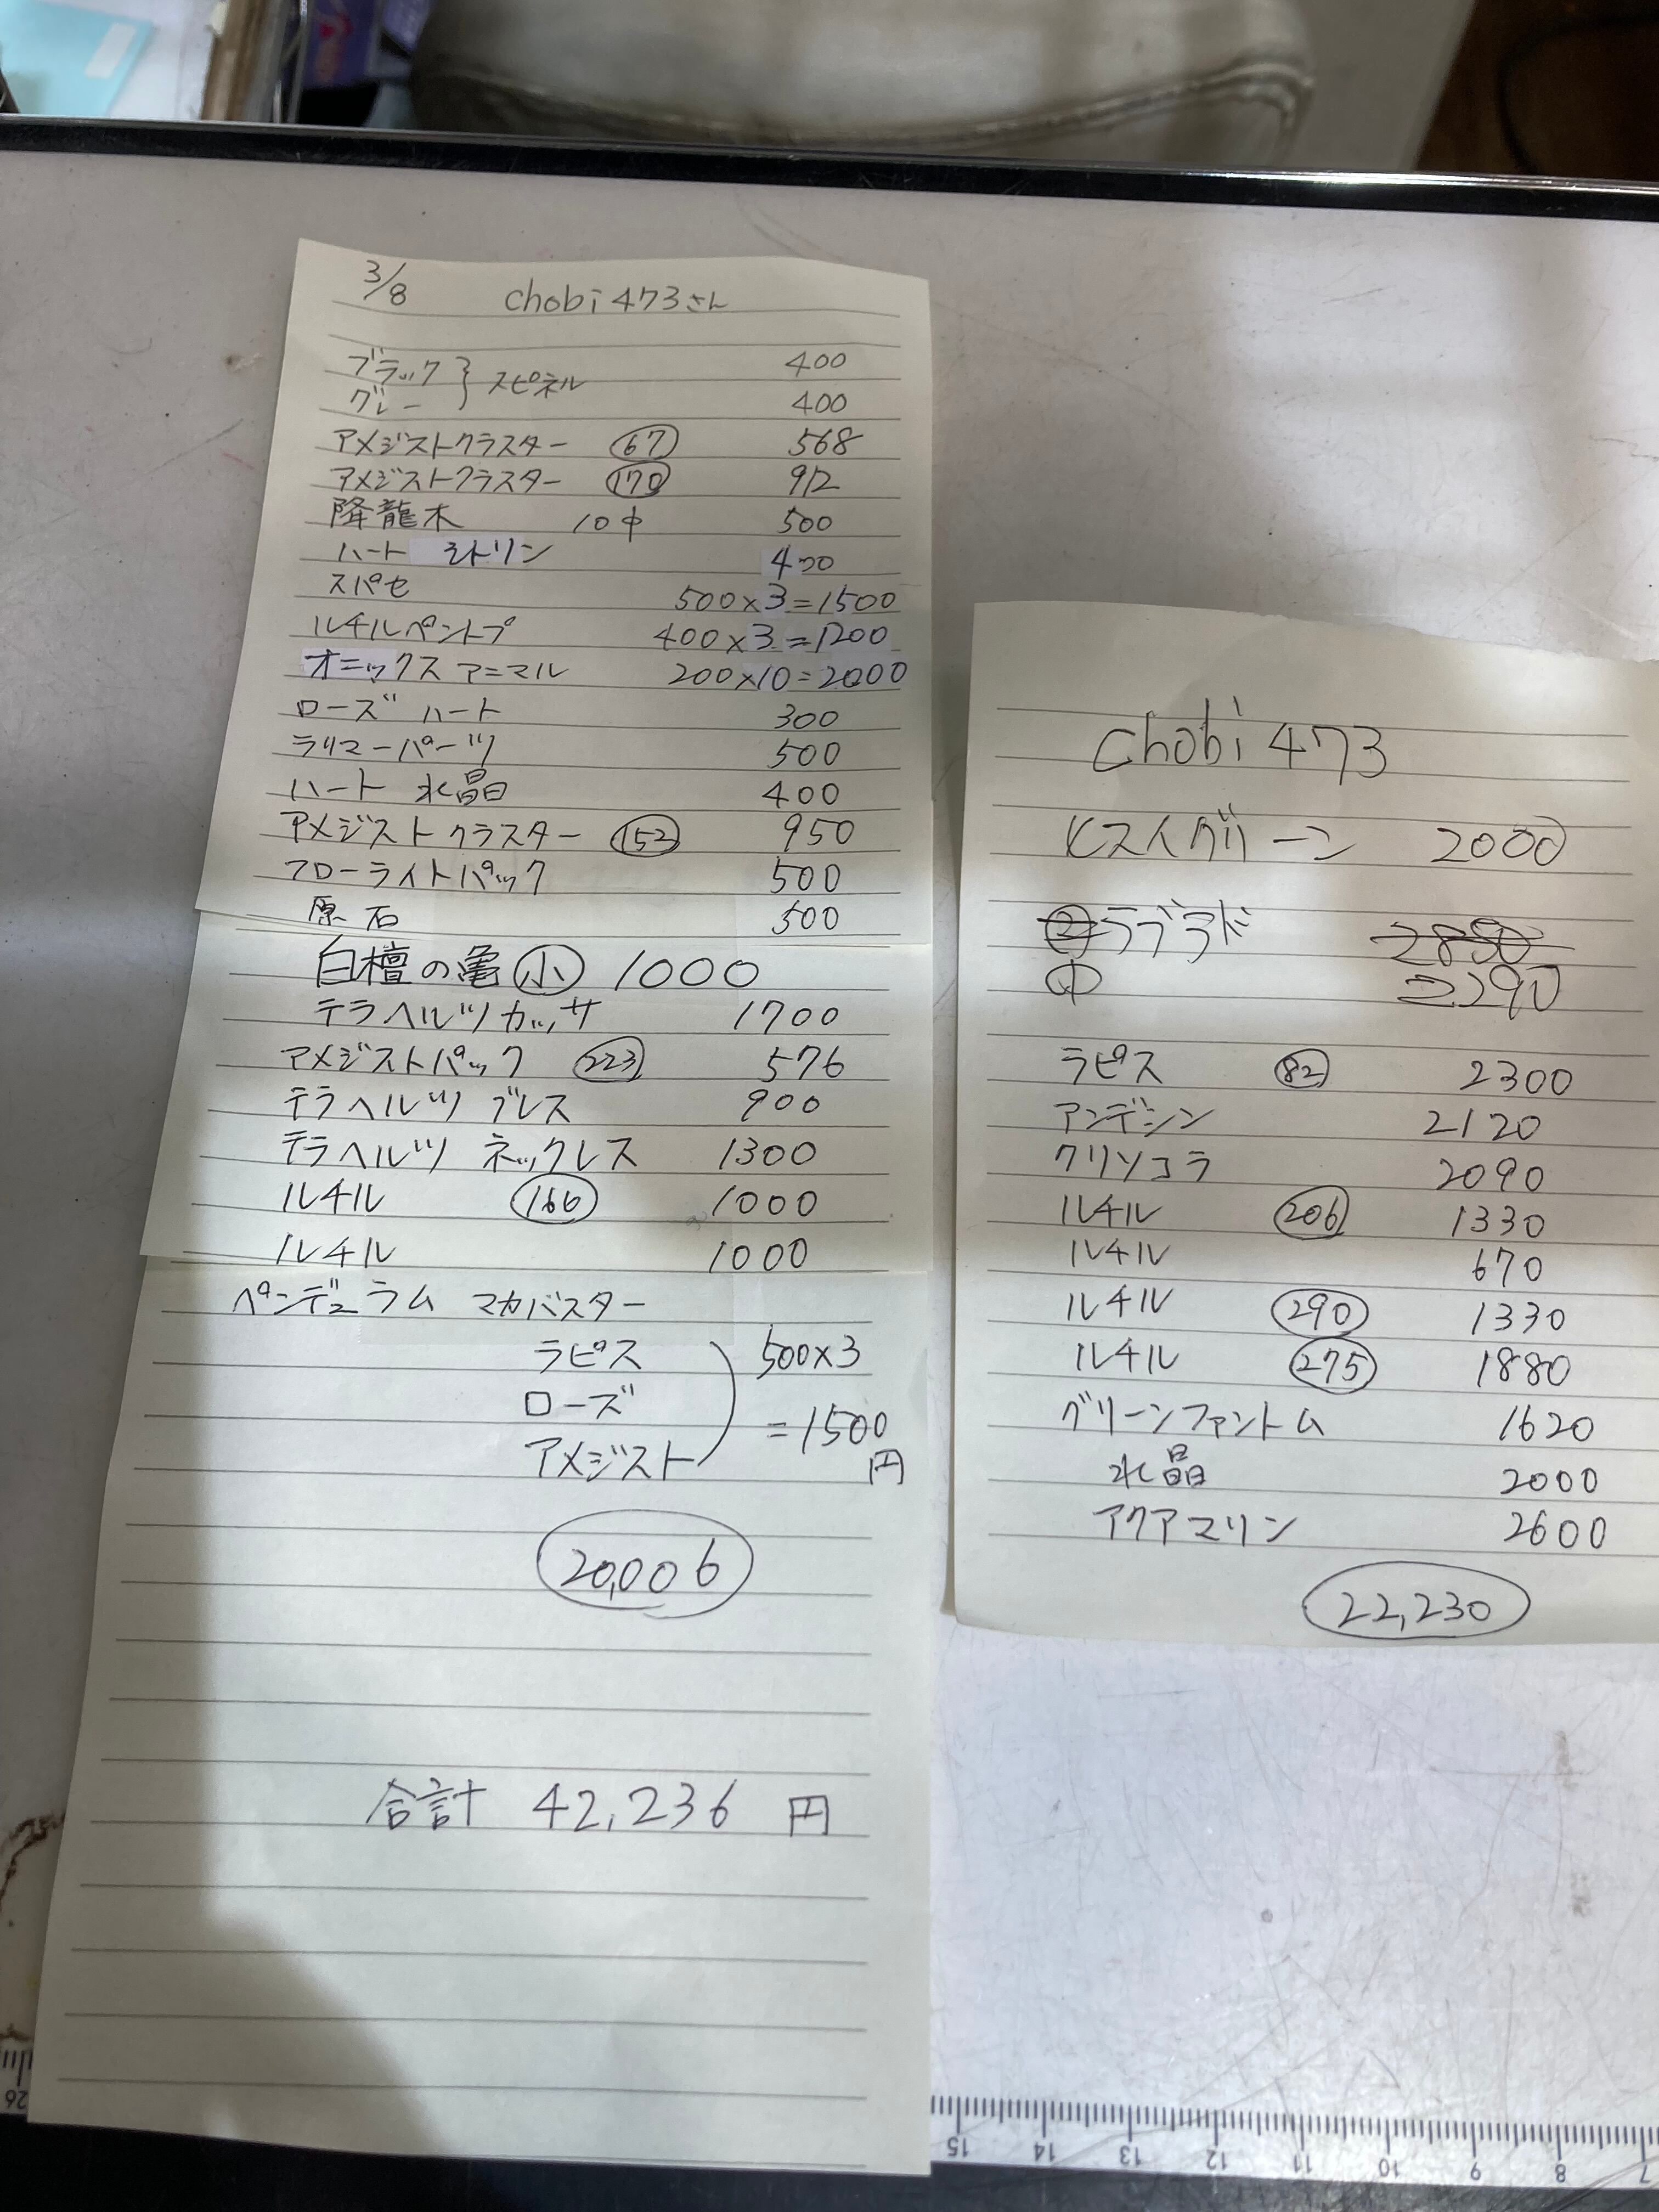 3/8 chobi473さん
ブラック } スピネル 400
グレー 400
アメジストクラスター 67 568
アメジストクラスター 170 912
降龍木 10中 500
ハート シトリン 400
スパセ 500×3=1500
ルチルペントプ 400×3=1200
オニックスアニマル 200×10=2000
ローズ ハート 300
ラリマーパーツ 500
ハート 水晶 400
アメジストクラスター 152 950
フローライトパック 500
原石
白檀の亀 小 1000
テラヘルツカッサ 1700
アメジストパック 223 576
テラヘルツ ブレス 900
テラヘルツ ネックレス 1300
ルチル 160 1000
ルチル 1000
ペンデュラム マカバスター
ラピス 500×3
ローズ =1500
アメジスト 円
20,006
合計 42,236 円
chobi473
ヒスイグリーン 2000
ラブラド 2850
中 2290
ラピス 82 2300
アンデシン 2120
クリソコラ 2090
ルチル 206 1330
ルチル 670
ルチル 290 1330
ルチル 275 1880
グリーンファントム 1620
水晶 2000
アクアマリン 2600
22,230
26
15 14 13 12 11 10 9 8 7